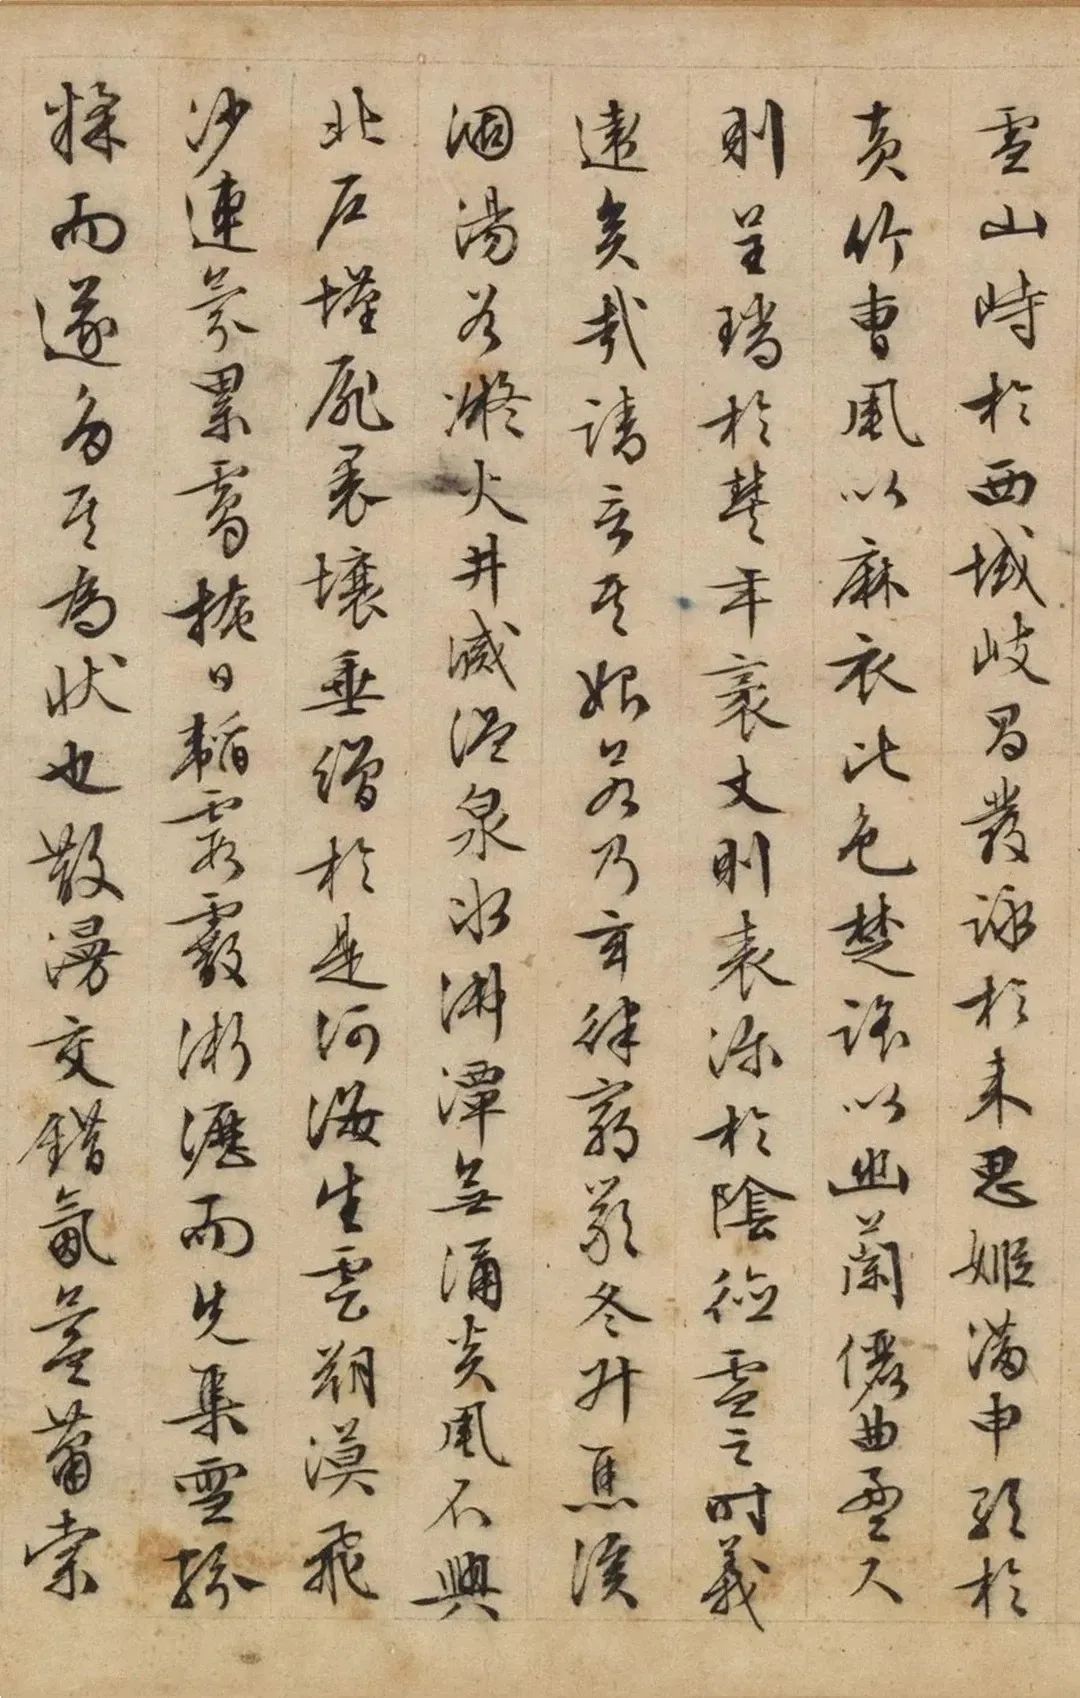 雪山峙於西域岐昌發詠於来思姬滿申歌於
黃竹曹風以麻衣比色楚謠以幽蘭儷曲盈尺
則呈瑞於豐年袤丈則表沴於陰德雪之時義
遠矣哉請言其始若乃玄律窮嚴冬升焦溪
涸湯谷凝火井滅溫泉冰沸潭無涌炎風不興
北戶墐扉裸壤垂繒於是河海生雲朔漠飛
沙連氛累靄掩日韜霞霰淅瀝而先集雪紛
糅而遂多其為狀也散漫交錯氛氳蕭索